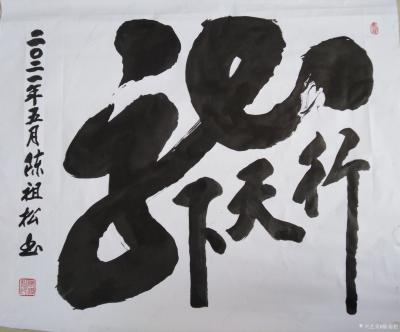 龍
行天下
二〇二一年五月陈祖松书